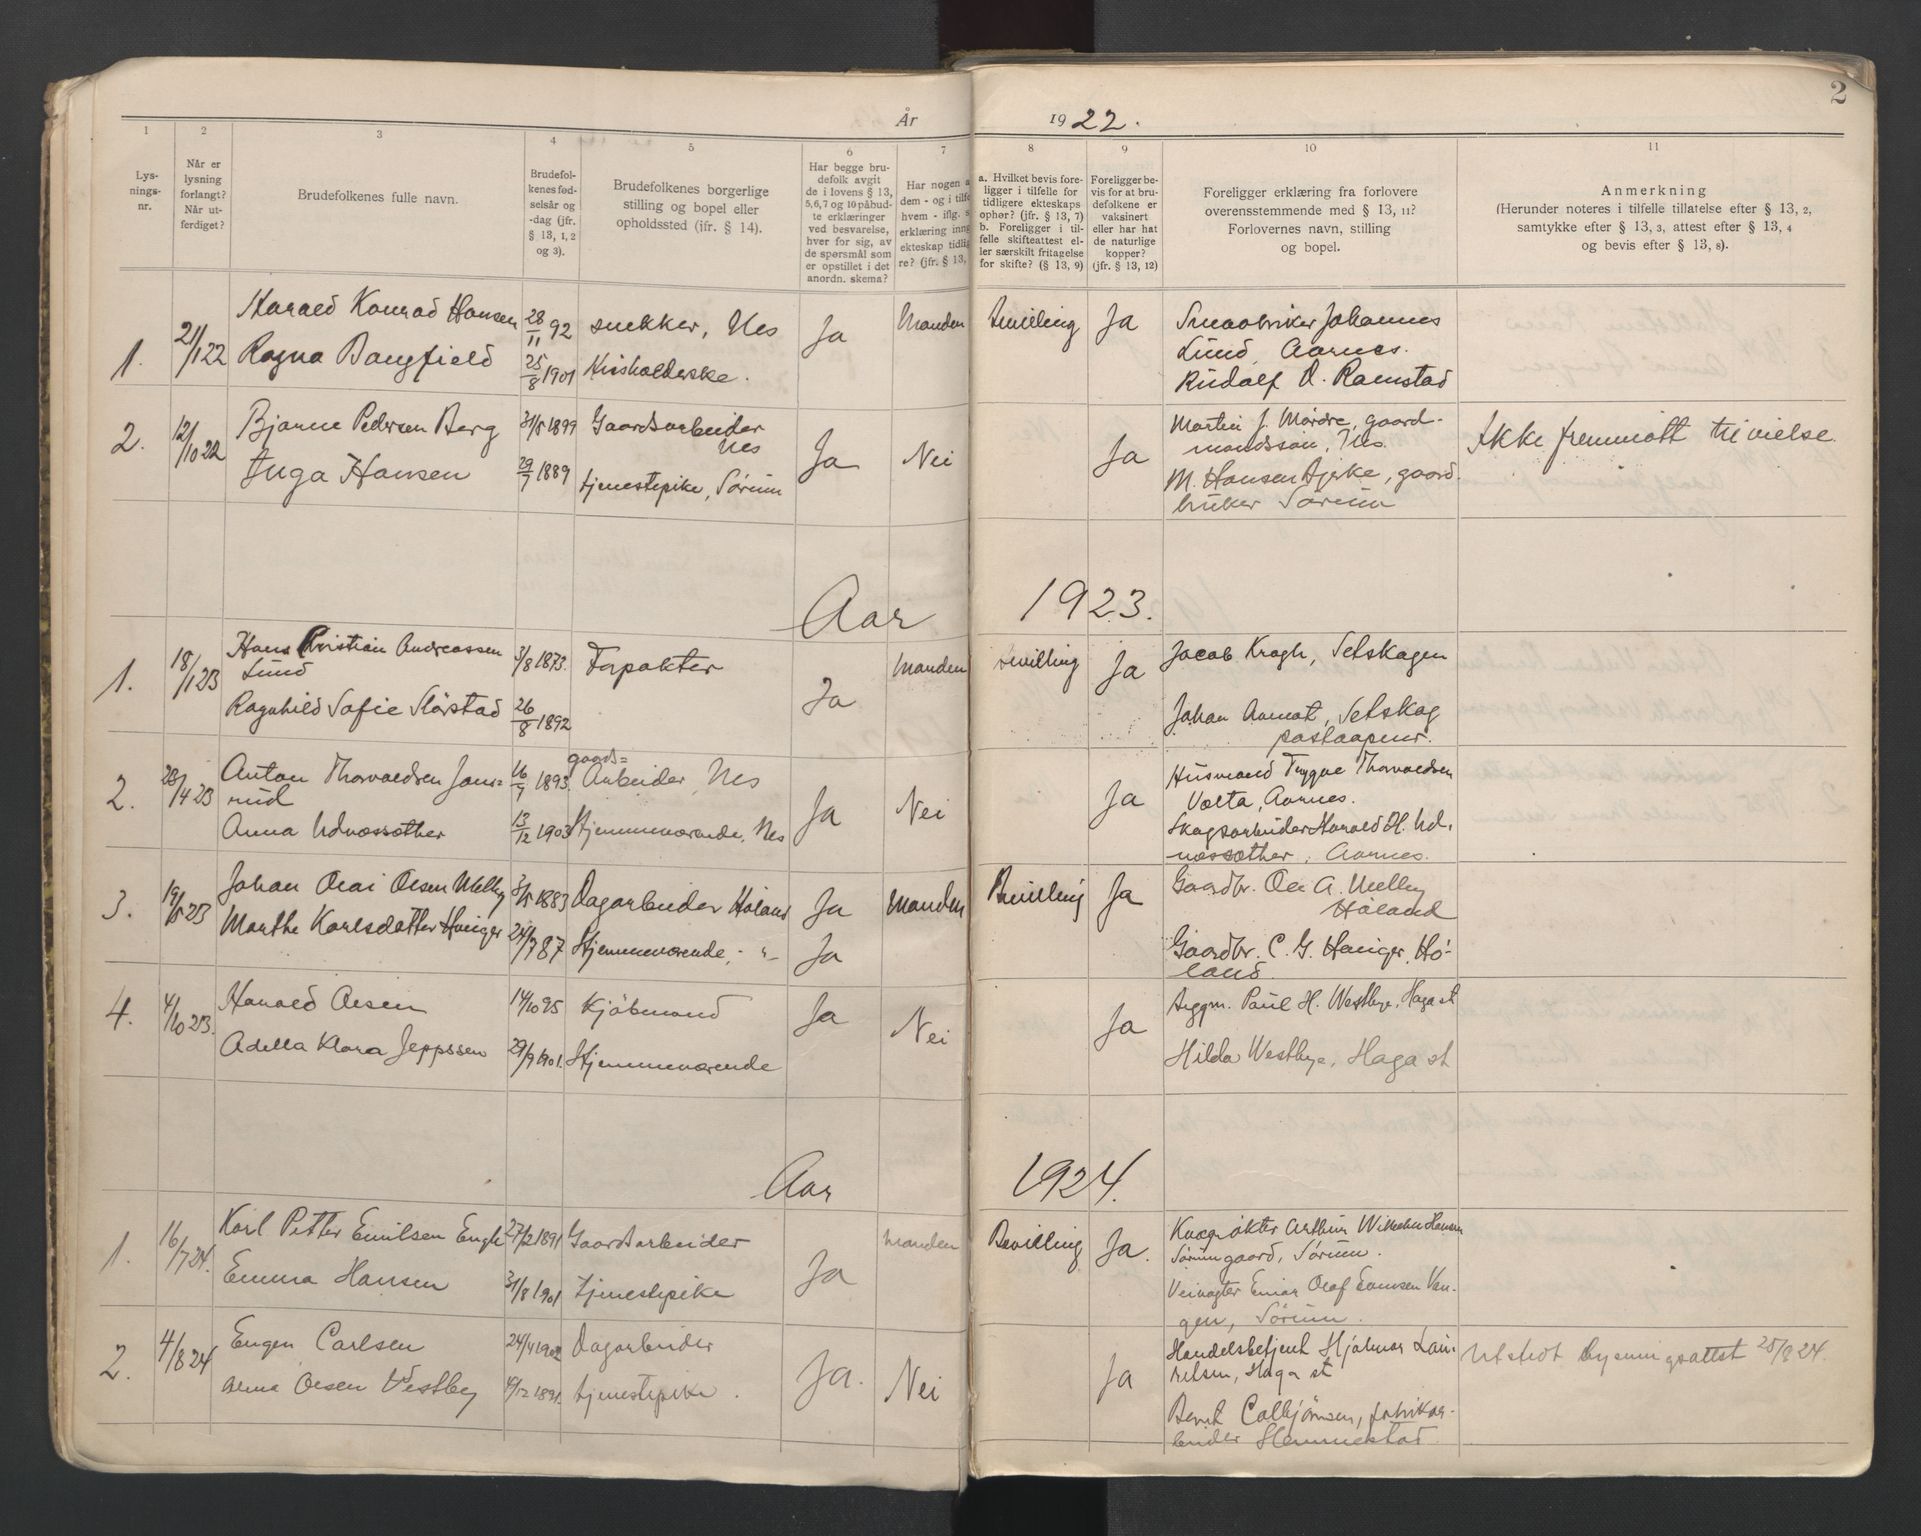 År 1922.
2
1 2 3 4 5 6 7 8 9 10 11
Lys-
nings-
nr.
Når er
lysning
forlangt?
Når ut-
ferdiget?
Brudefolkenes fulle navn.
Brudefol-
kenes fød-
selsår og
-dag (jfr.
§ 13, 1, 2
og 3).
Brudefolkenes borgerlige
stilling og bopel eller
opholdssted (jfr. § 14).
Har begge bru-
defolk avgit
de i lovens § 13,
5, 6, 7 og 10 påbud-
te erklæringer
ved besvarelse,
hver for sig, av
de spørsmål som
er opstillet i det
anordn. skema?
Har nogen a
dem - og i tilfe
hvem - iflg. s
erklæring inng
ekteskap tidlig
re? (jfr. § 13,
a. Hvilket bevis fore-
ligger i tilfelle for
tidligere ekteskaps
ophør? (jfr. § 13, 7)
b. Foreligger i til-
felle skifteattest el-
ler særskilt fritagelse
for skifte? (§ 13, 9)
Foreligger be-
vis for at bru-
defolkene er
vaksinert
eller har hat
de naturlige
kopper?
(jfr. § 13, 12)
Foreligger erklæring fra forlovere
overensstemmende med § 13, 11?
Forlovernes navn, stilling
og bopel.
Anmerkning
(Herunder noteres i tilfelle tillatelse efter § 13, 2,
samtykke efter § 13, 3, attest efter § 13, 4
og bevis efter § 13, 8).
1. 21/1 22 Harald Konrad Hansen 28/11 92 snekker, Nes Ja Manden Bevilling Ja Smaabruker Johannes
Lund, Aarnes.
Ragna Bangfield 25/8 1901 Husholderske. Rudolf O. Ramstad
2. 12/10 22 Bjarne Pedersen Berg 31/5 1899 Gaardsarbeider
Nes Ja Nei Ja Martin J. Mørdre, gaard-
mandssøn, Nes. Ikke fremmøtt til vielse.
Inga Hansen 29/7 1889 tjenestepike, Sørum M. Hansen Bjerke, gaard-
bruker Sørum
Aar 1923.
1. 18/1 23 Hans Kristian Andreassen
Lund 3/8 1873. Forpakter Ja Manden Bevilling Ja Jacob Kragh, Setskogen
Ragnhild Sofie Slørstad 26/8 1892 Johan Aamot, Setskog
postaapner.
2. 28/4 23 Anton Thorvaldsen Jons=
rud 16/9 1893. gaards=
Arbeider, Nes Ja Nei Ja Husmand Trygve Thorvaldsen
Vælta, Aarnes.
Anna Udnæssæther 13/12 1903 Hjemmeværende, Nes Skogsarbeider Harald H. Ud-
næssæther, Aarnes.
3. 19/5 23 Johan Olai Olsen Melby 3/5 1883 Dagarbeider Høland Ja Manden Bevilling Ja Gaardbr. Ole A. Melby
Høland
Marthe Karlsdatter Haneger 24/7 87 Hjemmeværende, - " - Ja Gaardbr. C. G. Haneger, Hø-
land.
4. 4/10 23. Harald Olsen 14/10 95 Kjøbmand Ja Nei Ja Byggm. Paul H. Westbye, Haga st
Adella Klara Jeppssen 29/9 1901. Hjemmeværende Hilda Westbye, Haga st
Aar 1924.
1. 16/7 24. Karl Petter Emilsen Engh 27/2 1891 Gaardsarbeider Ja Manden Bevilling Ja. Kvægrøkter Arthur Wilhelm Hansen
Sørum gaard, Sørum.
Emma Hansen 31/8 1901 tjenestepike Veivogter Einar Olaf Evensen Van-
gen, Sørum.
2. 4/8 24 Eugen Carlsen 24/4 1902 Dagarbeider Ja. Nei Ja Handelsbetjent Hjalmar Lau-
ritsen, Haga st Utstedt lysningsattest 25/8 24.
Olsen Vestby 1891. tjenestepike. Bernt Calbjørnsen, fabrikar-
beider Hemnestad